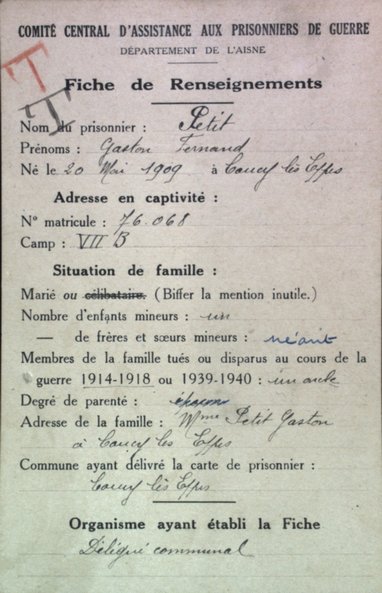 COMITÉ CENTRAL D'ASSISTANCE AUX PRISONNIERS DE GUERRE
DÉPARTEMENT DE L'AISNE
T
T
Fiche de Renseignements
Nom du prisonnier : Petit
Prénoms : Gaston Fernand
Né le 20 Mai 1909 à Coucy lès Eppes
Adresse en captivité :
N° matricule : 76.068
Camp : VII B
Situation de famille :
Marié ou célibataire. (Biffer la mention inutile.)
Nombre d'enfants mineurs : un
— de frères et sœurs mineurs : néant
Membres de la famille tués ou disparus au cours de la
guerre 1914-1918 ou 1939-1940 : un oncle
Degré de parenté :
Adresse de la famille : Mme Petit Gaston
à Coucy les Eppes
Commune ayant délivré la carte de prisonnier :
Coucy lès Eppes
Organisme ayant établi la Fiche
Délégué communal